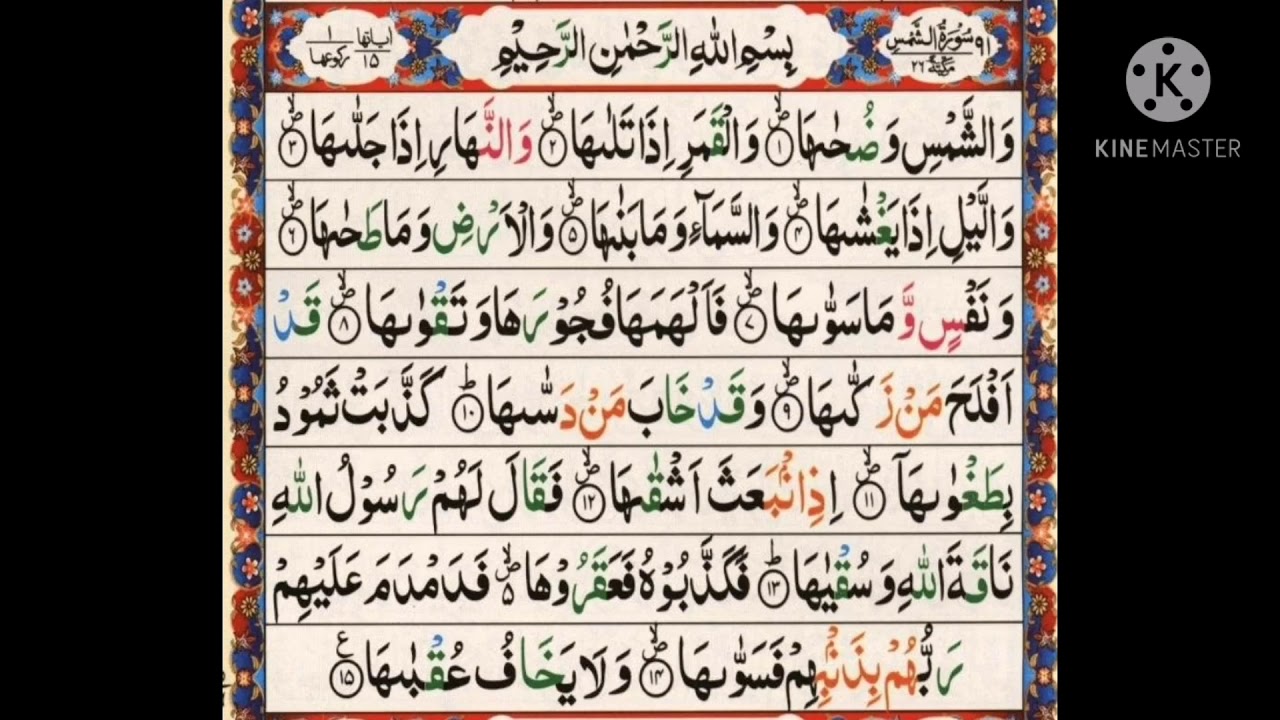 سُوْرَةُ الشَّمْسِ ٩١
مَكِّيَّةٌ ٢٦
بِسْمِ اللّٰهِ الرَّحْمٰنِ الرَّحِيْمِ
اٰيَاتُهَا ١٥
رُكُوْعُهَا ١
K
KINEMASTER
وَالشَّمْسِ وَضُحٰىهَا ۪ۙ‏﴿۱﴾ وَالْقَمَرِ اِذَا تَلٰىهَا ۪ۙ‏﴿۲﴾ وَالنَّهَارِ اِذَا جَلّٰىهَا ۪ۙ‏﴿۳﴾
وَالَّيْلِ اِذَا يَغْشٰىهَا ۪ۙ‏﴿۴﴾ وَالسَّمَآءِ وَمَا بَنٰىهَا ۪ۙ‏﴿۵﴾ وَالْاَرْضِ وَمَا طَحٰىهَا ۪ۙ‏﴿۶﴾
وَنَفْسٍ وَّمَا سَوّٰىهَا ۪ۙ‏﴿۷﴾ فَاَلْهَمَهَا فُجُوْرَهَا وَتَقْوٰىهَا ۪ۙ‏﴿۸﴾ قَدْ
اَفْلَحَ مَنْ زَكّٰىهَا ۪ۙ‏﴿۹﴾ وَقَدْ خَابَ مَنْ دَسّٰىهَا ؕ‏﴿۱۰﴾ كَذَّبَتْ ثَمُوْدُ
بِطَغْوٰىهَاۤ ۪ۙ‏﴿۱۱﴾ اِذِانْۢبَعَثَ اَشْقٰىهَا ۪ۙ‏﴿۱۲﴾ فَقَالَ لَهُمْ رَسُوْلُ اللّٰهِ
نَاقَةَ اللّٰهِ وَسُقْيٰهَا ؕ‏﴿۱۳﴾ فَكَذَّبُوْهُ فَعَقَرُوْهَا ۪ۙ۵ فَدَمْدَمَ عَلَيْهِمْ
رَبُّهُمْ بِذَنْۢبِهِمْ فَسَوّٰىهَا ۪ۙ‏﴿۱۴﴾ وَلَا يَخَافُ عُقْبٰىهَا ‏﴿۱۵﴾ ع